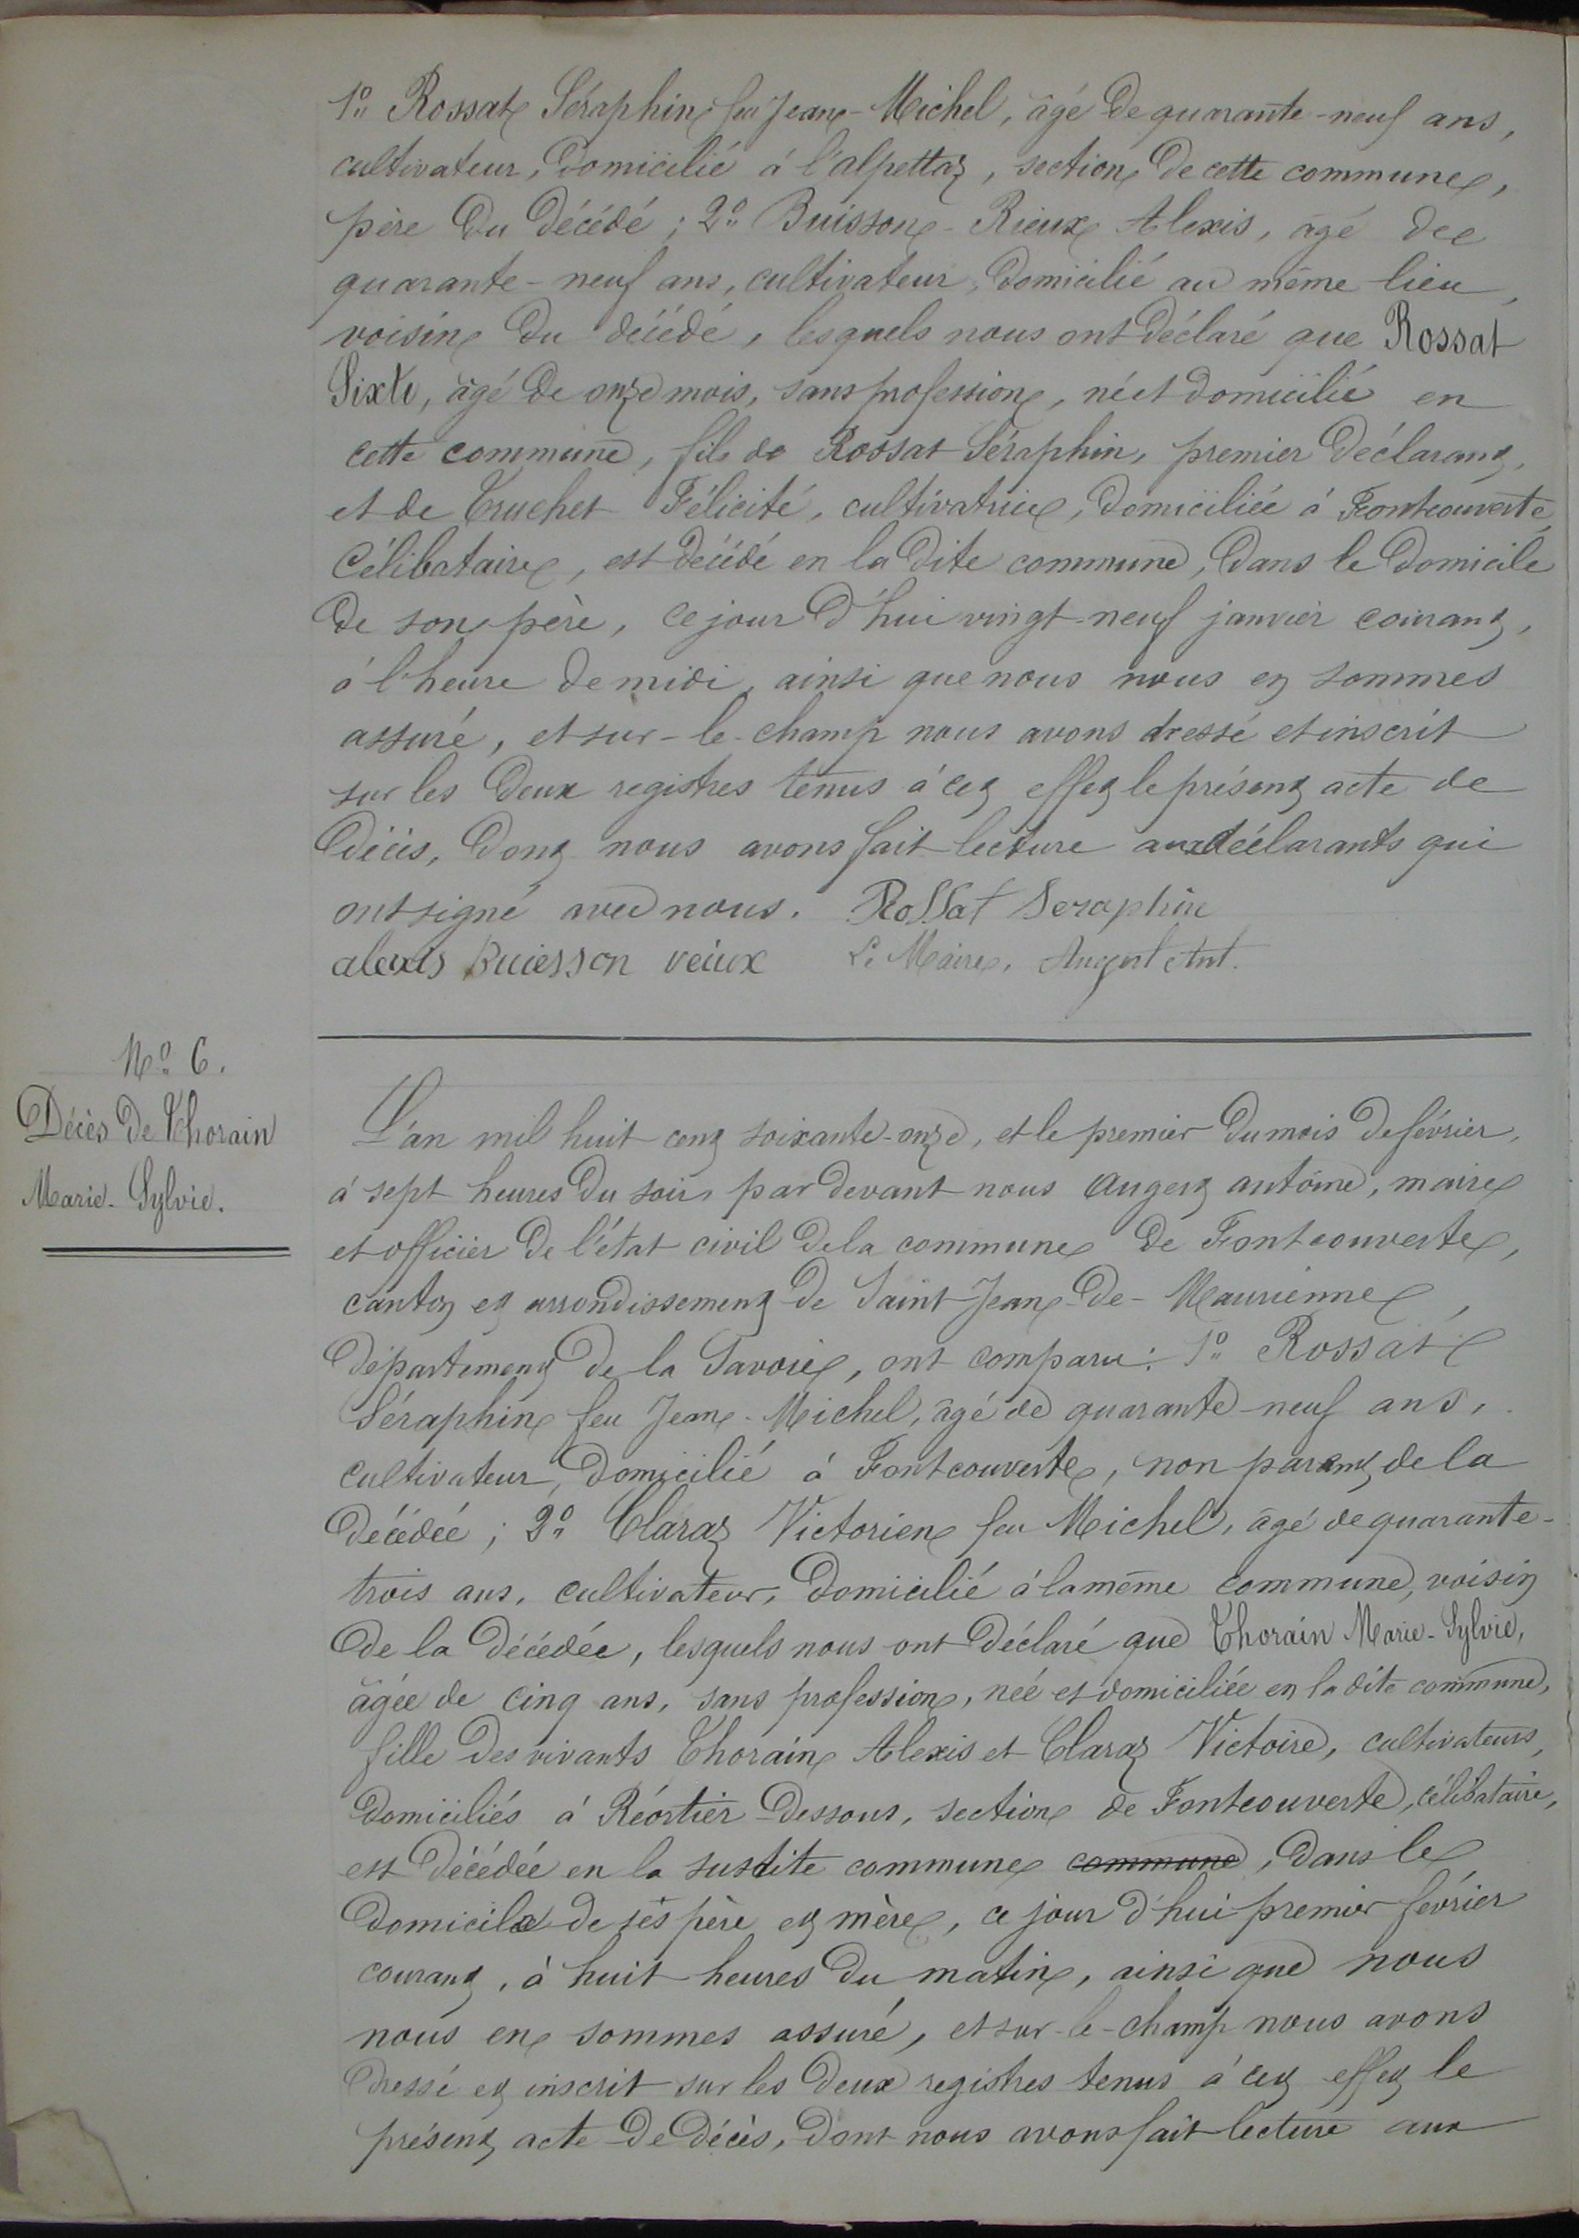 1º Rossat Séraphin feu Jean-Michel, âgé de quarante-neuf ans,
cultivateur, domicilié à l'alpettaz, section de cette commune,
père du décédé ; 2º Buisson-Rieux Alexis, âgé de
quarante-neuf ans, cultivateur, domicilié au même lieu,
voisin du décédé, lesquels nous ont déclaré que Rossat
Sixte, âgé de onze mois, sans profession, né et domicilié en
cette commune, fils de Rossat Séraphin, premier déclarant,
et de Truchet Félicité, cultivatrice, domiciliée à Fontcouverte,
Célibataire, est décédé en la dite commune, dans le domicile
de son père, ce jour d'hui vingt-neuf janvier courant,
à l'heure de midi, ainsi que nous nous en sommes
assuré, et sur-le-champ nous avons dressé et inscrit
sur les deux registres tenus à cet effet le présent acte de
décès, dont nous avons fait lecture aux déclarants qui
ont signé avec nous. Rossat Seraphin
alexis Buisson reiux Le Maire, Augert Ant.
Nº 6.
Décès de Thorain
Marie-Sylvie.
L'an mil huit cent soixante-onze, et le premier du mois de février,
à sept heures du soir, par devant nous Augert antoine, maire
et officier de l'état civil de la commune de Fontcouverte,
canton et arrondissement de Saint-Jean-de-Maurienne,
département de la Savoie, ont comparu : 1º Rossat
Séraphin feu Jean-Michel, âgé de quarante-neuf ans,
cultivateur, domicilié à Fontcouverte, non parent de la
décédée ; 2º Claraz Victorien feu Michel, âgé de quarante-
trois ans, cultivateur, domicilié à la même commune, voisin
de la décédée, lesquels nous ont déclaré que Thorain Marie-Sylvie,
âgée de cinq ans, sans profession, née et domiciliée en la dite commune,
fille des vivants Thorain Alexis et Claraz Victoire, cultivateurs,
domiciliés à Réortier-Dessous, section de Fontcouverte, célibataire,
est décédée en la susdite commune commune, dans le
domicile de ses père et mère, ce jour d'hui premier février
courant, à huit heures du matin, ainsi que nous
nous en sommes assuré, et sur-le-champ nous avons
dressé et inscrit sur les deux registres tenus à cet effet le
présent acte de décès, dont nous avons fait lecture aux